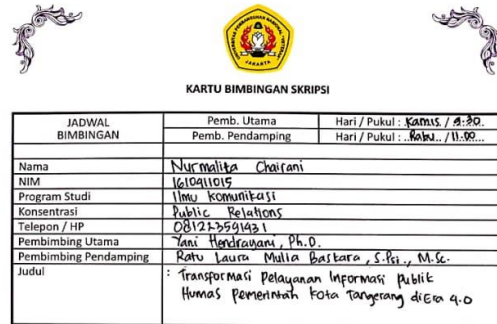 UNIVERSITAS PEMBANGUNAN NASIONAL "VETERAN"
JAKARTA
KARTU BIMBINGAN SKRIPSI
JADWAL BIMBINGAN
Pemb. Utama Hari / Pukul : Kamis. / 9.30.
Pemb. Pendamping Hari / Pukul : ..Rabu.. / 11.00...
Nama Nurmalita Chairani
NIM 1610411015
Program Studi Ilmu Komunikasi
Konsentrasi Public Relations
Telepon / HP 081223591431
Pembimbing Utama Yani Hendrayani, Ph.D.
Pembimbing Pendamping Ratu Laura Mulia Baskara, S.Psi., M.Sc.
Judul : Transformasi Pelayanan Informasi Publik
Humas Pemerintah Kota Tangerang di Era 4.0